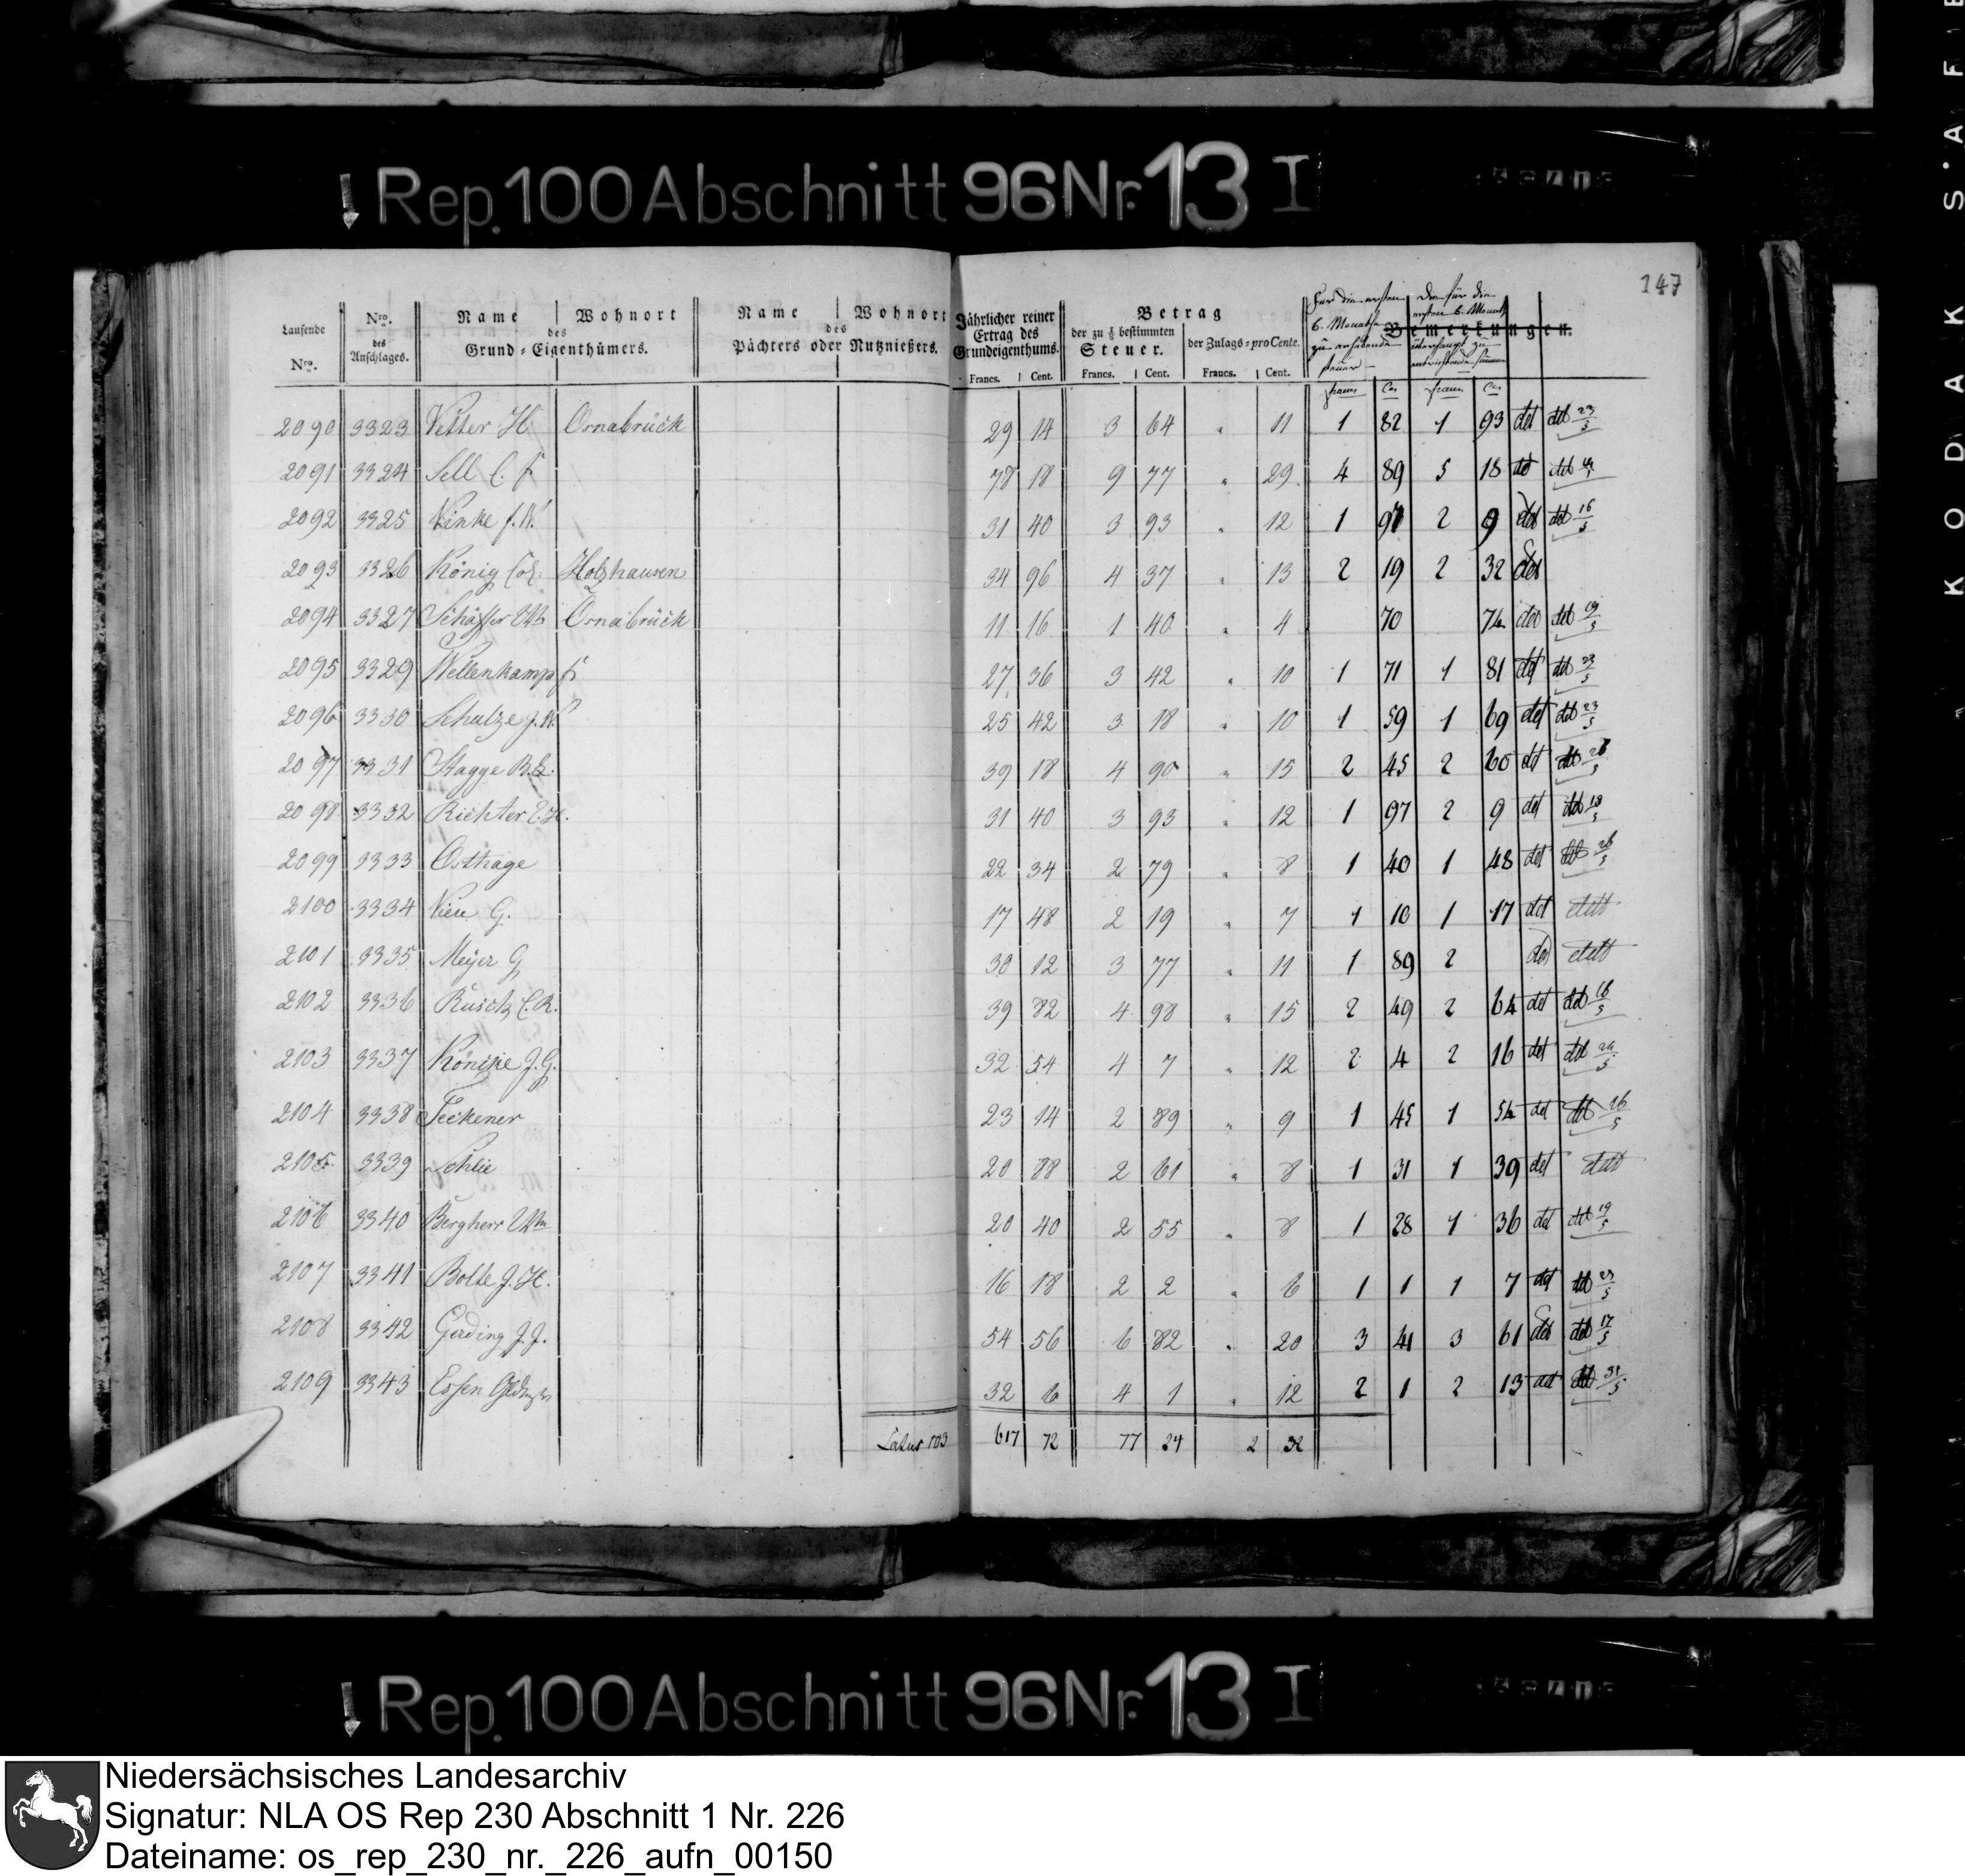 Rep. 100 Abschnitt 96 Nr. 13 I
147
Laufende Nro.
Nro. des Anschlages.
Name Wohnort
des
Grund-Eigenthümers.
Name Wohnort
des
Pächters oder Nutznießers.
Jährlicher reiner Ertrag des Grundeigenthums.
Francs. Cent.
Betrag
der zu ⅛ bestimmten Steuer.
Francs. Cent.
der Zulags-pro Cente.
Francs. Cent.
Für die ersten 6. Monathe zu erhebende Steuer
Die für die ersten 6. Monathe überhaupt zu entrichtende Summe
Bemerkungen.
francs Ces francs Ces
2090 3323 Vetter H Osnabrück 29 14 3 64 " 11 1 82 1 93 det det 23/5
2091 3324 Sell C. F 78 18 9 77 " 29 4 89 5 18 det det
2092 3325 Vinke f. W. 31 40 3 93 " 12 1 97 2 9 det det 16/5
2093 3326 König Col: Holzhausen 34 96 4 37 " 13 2 19 2 32 det
2094 3327 Schäffer Wb Osnabrück 11 16 1 40 " 4 70 74 det det 19/5
2095 3329 Wellenkamp F 27 36 3 42 " 10 1 71 1 81 det det 23/5
2096 3330 Schulze J. W. 25 42 3 18 " 10 1 59 1 69 det det 23/5
2097 3331 Stagge 39 18 4 90 " 15 2 45 2 60 det det 26/5
2098 3332 Richter E. H. 31 40 3 93 " 12 1 97 2 9 det det 18/5
2099 3333 Osthage 22 34 2 79 " 8 1 40 1 48 det det 26/5
2100 3334 G. 17 48 2 19 " 7 1 10 1 17 det dett
2101 3335 Meyer G 30 12 3 77 " 11 1 89 2 det dett
2102 3336 C. R. 39 82 4 98 " 15 2 49 2 64 det det 18/5
2103 3337 J. G. 32 54 4 7 " 12 2 4 2 16 det det 24/5
2104 3338 Teckener 23 14 2 89 " 9 1 45 1 54 det det 26/5
2105 3339 Schlie 20 88 2 61 " 8 1 31 1 39 det dett
2106 3340 Bergherr Wb 20 40 2 55 " 8 1 28 1 36 det det 19/5
2107 3341 Bolte J. H. 16 18 2 2 " 6 1 1 1 7 det det 23/5
2108 3342 Gerding J. J. 54 56 6 82 " 20 3 41 3 61 det det 17/5
2109 3343 Essen 32 6 4 1 " 12 2 1 2 13 det det 31/5
Latus 103 617 72 77 24 2 32
Rep. 100 Abschnitt 96 Nr. 13 I
KODAK SAFE
Niedersächsisches Landesarchiv
Signatur: NLA OS Rep 230 Abschnitt 1 Nr. 226
Dateiname: os_rep_230_nr._226_aufn_00150